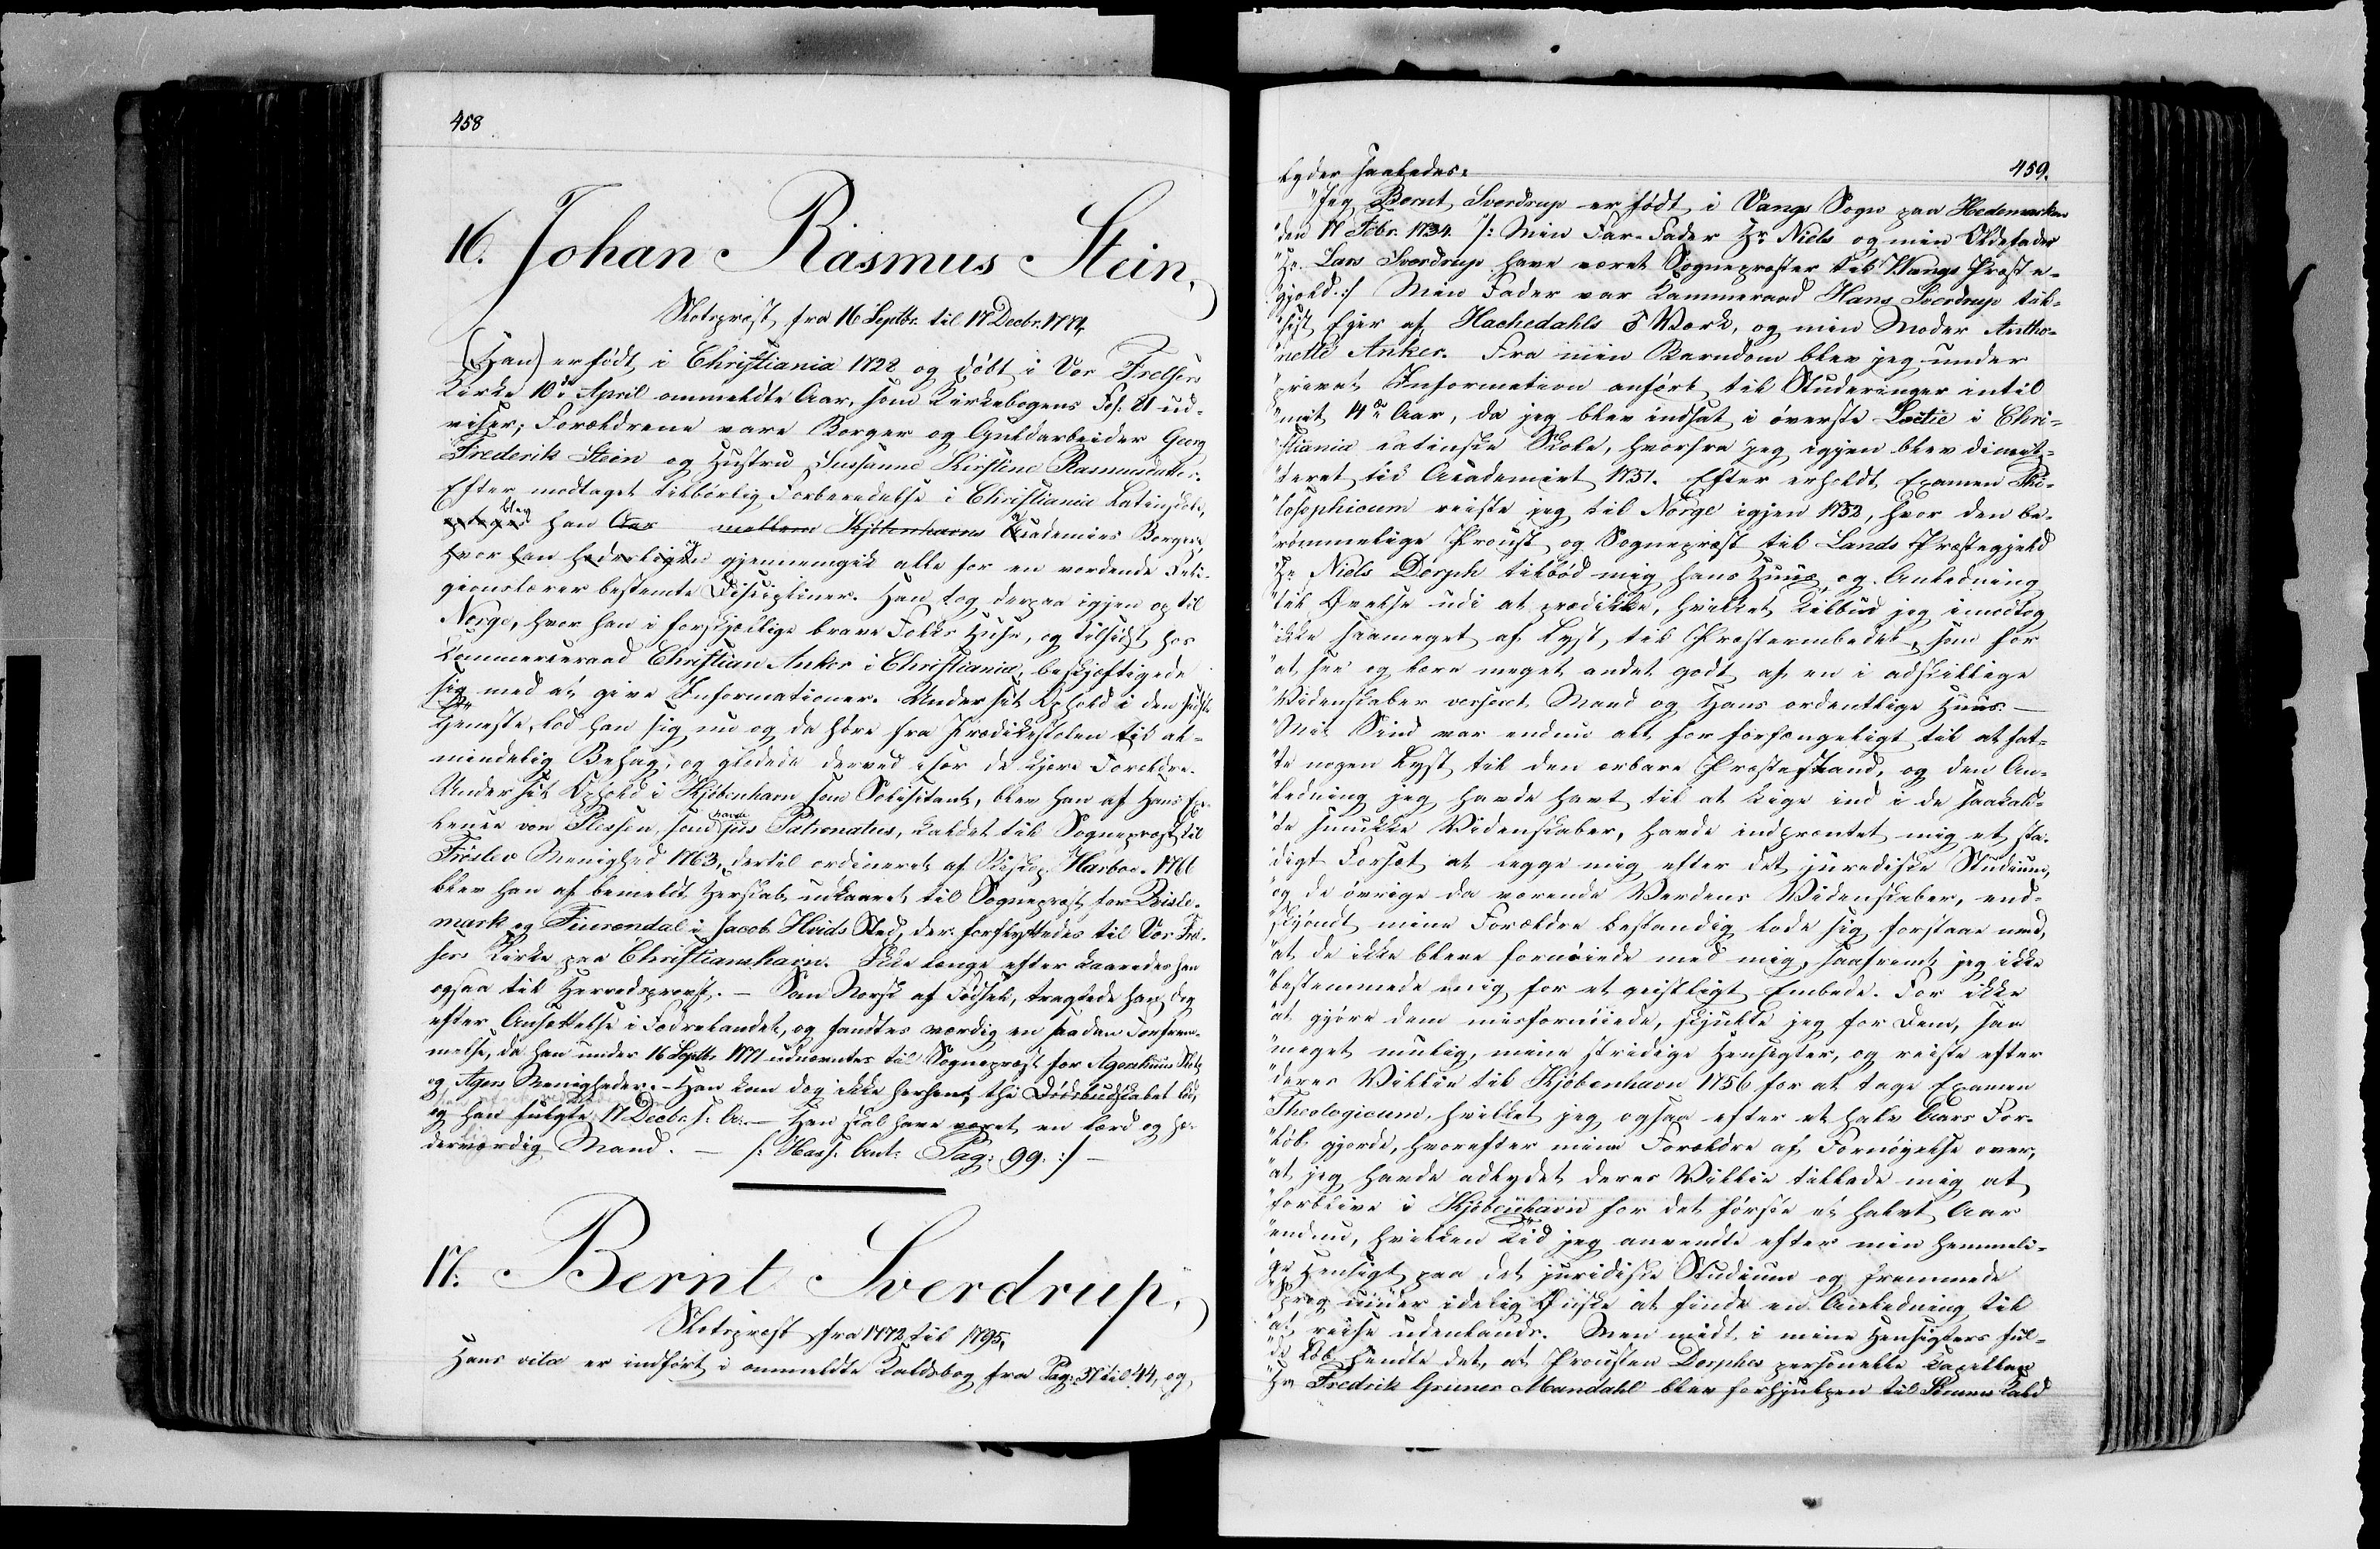 458
16. Johan Rasmus Stein,
Slotspræst fra 16 Septbr. til 17 Decbr. 1771,
(Han) er født i Christiania 1728 og døbt i Vor Frelsers
Kirke 10de April ommeldte Aar, som Kirkebogens Fol. 21 ud-
viser; Forældrene vare Borger og Guldarbeider Georg
Frederik Stein og Hustru Susanne Kirstine Rasmusdatter.
Efter modtaget tilbørlig Forberedelse i Christiania Latinskole,
blev han Aar mellem Kjøbenhavns Academies Borgere,
hvor han hæderligen og gjennemgik alle for en vordende Reli-
gionslærer bestemte Discipliner. Han tog derpaa igjen op til
Norge, hvor han i forskjellige brave Folks Huse, og tilsidst hos
Kammerraad Christian Anker i Christiania, beskjæftigede
sig med at give Informationer. Under sit Ophold i den sidste
Tjeneste lod han sig nu og da høre fra Prædikestolen til al-
mindelig Behag, og glædede derved især de kjære Forældre.
Under sit Ophold i Kjøbenhavn som Solisitant, blev han af Hans Ex-
lence von Plessen, som havde jus Patronatus, kaldet til Sognepræst til
Frøslev Menighed 1763, dertil ordineret af Biskop Harboe. 1766
blev han af bemeldt Herskab udkaaret til Sognepræst for Qvisle-
mark og Fuirendal i Jacob Hvids Sted, der forflyttedes til Vor Frel-
sers Kirke paa Christianshavn. Ikke længe efter kaaredes han
ogsaa til Herredsprovst. — Som Norsk af Fødsel, tragtede han dog
efter Ansættelse i Fædrelandet, og fandtes værdig en saadan Forfrem-
melse, da han under 16 Septbr 1771 udnævntes til Sognepræst for Agershuus Slots
og Agers Menigheder. — Han kom dog ikke herhen, thi Dødsbudskabet lød,
og han fulgte 17 Decbr. s: A:. — Han skal have været en lærd og hæ-
derværdig Mand. — /: Hass. Ant: Pag: 99. :/ —
17. Bernt Sverdrup,
Slotspræst fra 1772 til 1795,
Hans vita er indført i ommeldte Kaldsbog fra Pag: 37 til 44, og
459.
lyder saaledes:
"Jeg Bernt Sverdrup er født i Vangs Sogn paa Hedemarken
"den 17 Febr. 1734. /: Min Far-Fader Hr. Niels og min Oldefader
"Hr. Lars Sverdrup have været Sognepræster til Wangs Præste-
"gjeld :/ Min Fader var Kammerraad Hans Sverdrup til-
"sidst Ejer af Hachedahls Værk, og min Moder Antho-
"nette Anker. Fra min Barndom blev jeg under
"privat Information anført til Studeringer intil
"mit 14de Aar, da jeg blev indsat i øverste Lectie i Chri-
"stiania latinske Skole, hvorfra jeg igjen blev dimit-
"teret til Academiet 1751. Efter erholdt Examen Phi-
"losophicum reiste jeg til Norge igjen 1752, hvor den be-
"rømmelige Provst og Sognepræst til Lands Præstegjeld
"Hr Niels Dorph tilbød mig hans Huus og Anledning
"til Øvelse udi at prædikke, hvilket Tilbud jeg imodtog
"ikke saameget af Lyst til Præsteembedet, som for
"at see og lære meget andet godt af en i adskillige
"Videnskaber versseret Mand og Hans ordentlige Huus. —
"Mit Sind var endnu alt for forfængeligt til at fat-
"te nogen Lyst til den ærbare Præstestand, og den An-
"ledning jeg havde havt til at kige ind i de saakald-
"te smukke Videnskaber, havde indprentet mig et sta-
"digt Forsæt at legge mig efter det juridiske Studium,
"og de øvrige da værende Verdens Videnskaber, end-
"skjøndt mine Forældre bestandig lode sig forstaae med,
"at de ikke bleve fornøiede med mig, saafremt jeg ikke
"bestemmede mig for et geistligt Embede. For ikke
"at gjøre dem misfornøiede, skjulte jeg for Dem, saa
"meget mulig, mine stridige Hensigter, og reiste efter
"deres Villie til Kjøbenhavn 1756 for at tage Examen
"Theologicum, hvilket jeg ogsaa efter et halv Aars For-
"løb gjorde, hvorefter mine Forældre af Fornøyelse over,
"at jeg havde adlydet deres Villie tillade mig at
"forblive i Kjøbenhavn for det første et halvt Aar
"endnu, hvilken Tid jeg anvendte efter min hemmeli-
"ge Hensigt paa det juridiske Studium og fremmede
"Sprog under idelig Ønske at finde en Anledning til
"at reise udenlands. Men midt i mine Hensigters ful-
"de Løb hendte det, at Provsten Dorphs personelle Capellan
"Hr Fredrik Gruner Mandahl blev forhjulpen til Lands Kald